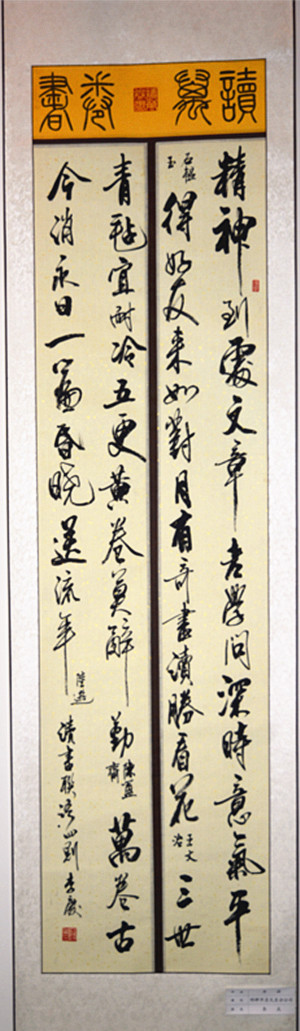 讀萬卷書
精神到處文章老學問深時意氣平
石韞玉 得好友來如對月有奇書讀勝看花 王文治 三世
青氈宜耐冷五更黃卷莫辭勤 萬卷古
今消永日一窗昏曉送流年 陸游 讀書聯語四則